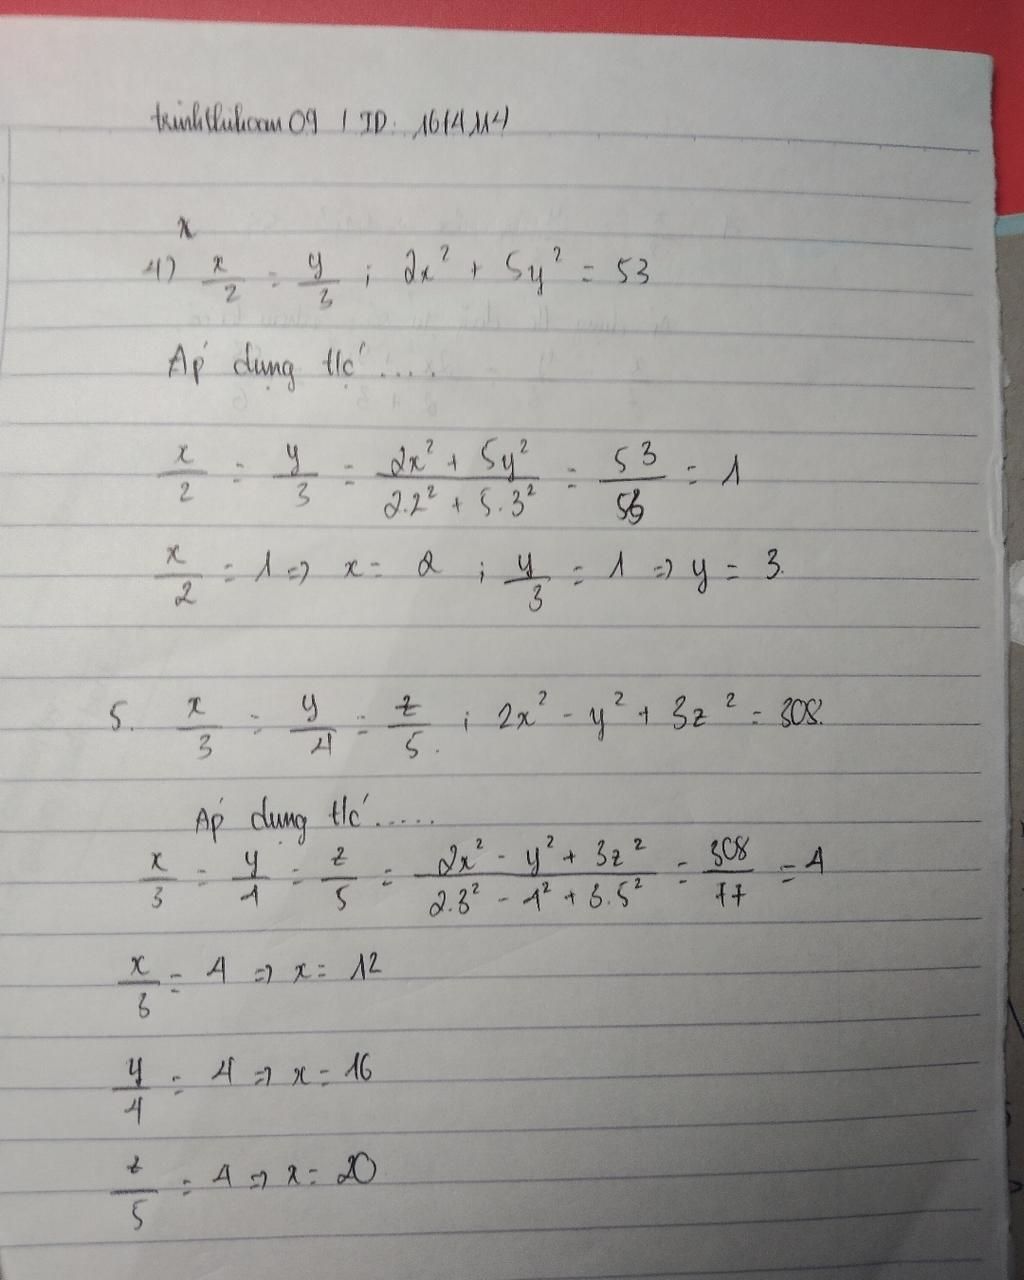 trinhthihoan09 / ID: 1614114
x
4) x/2 = y/3 ; 2x² + 5y² = 53
Áp dụng t/c ....
x/2 = y/3 = (2x² + 5y²)/(2.2² + 5.3²) = 53/53 = 1
x/2 = 1 => x = 2 ; y/3 = 1 => y = 3.
5. x/3 = y/4 = z/5. ; 2x² - y² + 3z² = 308.
Áp dụng t/c .....
x/3 = y/4 = z/5 = (2x² - y² + 3z²)/(2.3² - 4² + 3.5²) = 308/77 = 4
x/3 = 4 => x = 12
y/4 = 4 => x = 16
z/5 = 4 => x = 20